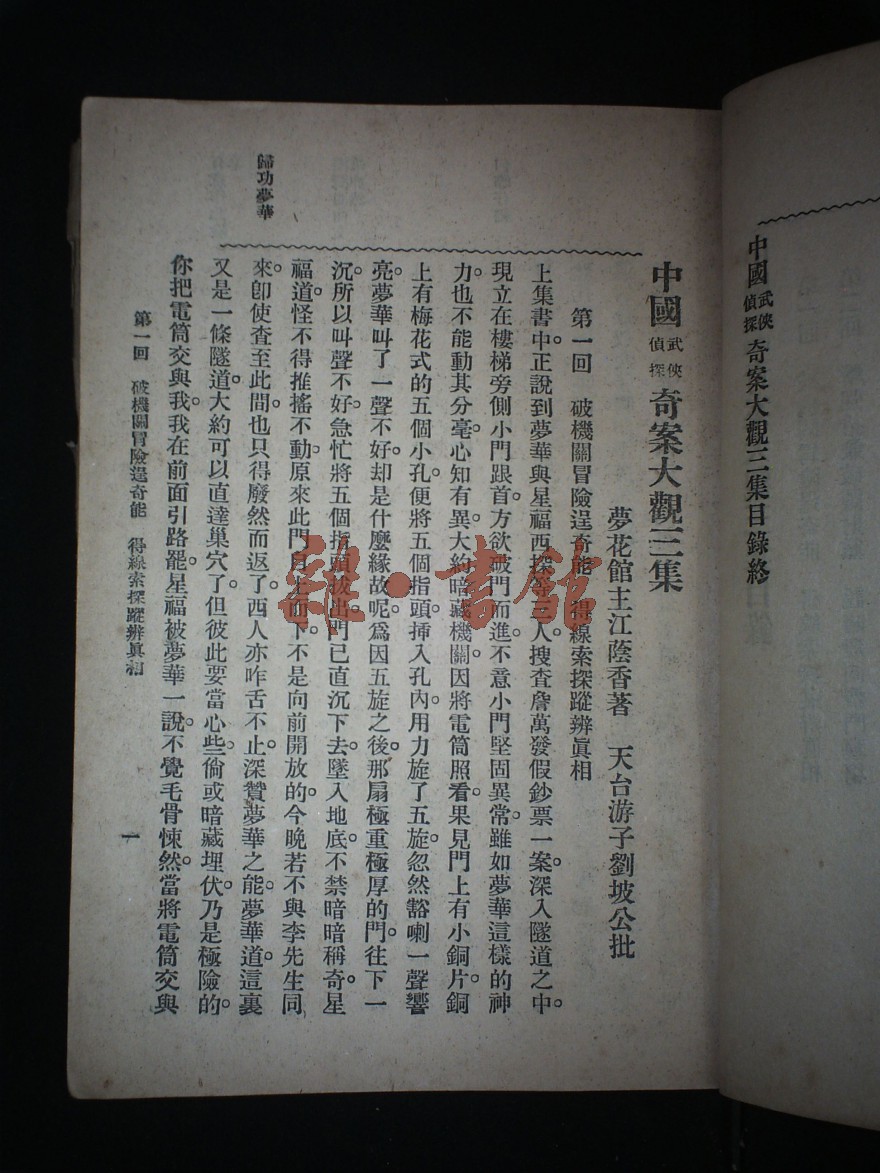 中國武俠偵探奇案大觀三集目錄終
中國武俠偵探奇案大觀三集
夢花館主江蔭香著　天台游子劉坡公批
第一回　破機關冒險逞奇能　得線索探蹤辨眞相
上集書中。正說到夢華與星福西探等三人。搜查詹萬發假鈔票一案。深入隧道之中。
現立在樓梯旁側小門跟首。方欲破門而進。不意小門堅固異常。雖如夢華這樣的神
力。也不能動其分毫。心知有異。大約暗藏機關。因將電筒照看。果見門上有小銅片。銅
上有梅花式的五個小孔。便將五個指頭。揷入孔內。用力旋了五旋。忽然豁喇一聲響
亮。夢華叫了一聲不好。却是什麼緣故呢。爲因五旋之後。那扇極重極厚的門。往下一
沉。所以叫聲不好。急忙將五個指頭拔出。門已直沉下去。墜入地底。不禁暗暗稱奇。星
福道。怪不得推搖不動。原來此門自上而下。不是向前開放的。今晚若不與李先生同
來。卽使查至此間。也只得廢然而返了。西人亦咋舌不止。深贊夢華之能。夢華道。這裏
又是一條隧道。大約可以直達巢穴了。但彼此要當心些。倘或暗藏埋伏。乃是極險的。
你把電筒交與我。我在前面引路罷。星福被夢華一說。不覺毛骨悚然。當將電筒交與
歸功夢華
第一回　破機關冒險逞奇能　得線索探蹤辨眞相
一
雜·書館